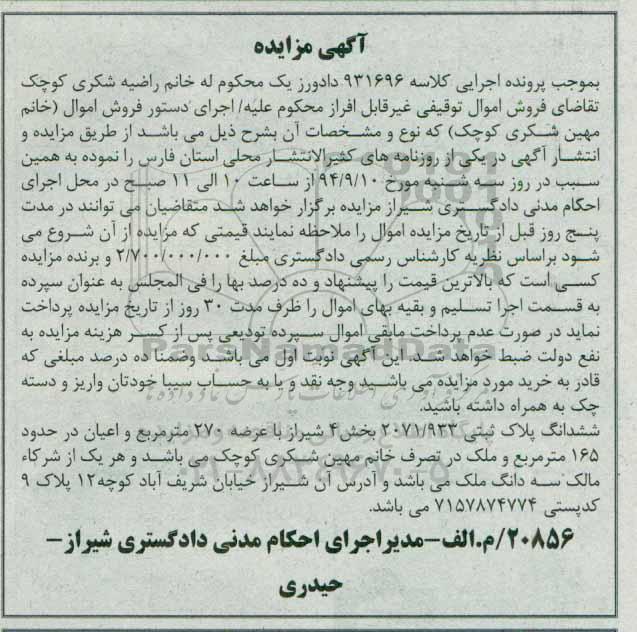 آگهی مزایده
بموجب پرونده اجرایی کلاسه ۹۳۱۶۹۶ دادورز یک محکوم له خانم راضیه شکری کوچک
تقاضای فروش اموال توقیفی غیرقابل افراز محکوم علیه/ اجرای دستور فروش اموال (خانم
مهین شکری کوچک) که نوع و مشخصات آن بشرح ذیل می باشد از طریق مزایده و
انتشار آگهی در یکی از روزنامه های کثیرالانتشار محلی استان فارس را نموده به همین
سبب در روز سه شنبه مورخ ۹۴/۹/۱۰ از ساعت ۱۰ الی ۱۱ صبح در محل اجرای
احکام مدنی دادگستری شیراز مزایده برگزار خواهد شد متقاضیان می توانند در مدت
پنج روز قبل از تاریخ مزایده اموال را ملاحظه نمایند قیمتی که مزایده از آن شروع می
شود براساس نظریه کارشناس رسمی دادگستری مبلغ ۲/۷۰۰/۰۰۰/۰۰۰ و برنده مزایده
کسی است که بالاترین قیمت را پیشنهاد و ده درصد بها را فی المجلس به عنوان سپرده
به قسمت اجرا تسلیم و بقیه بهای اموال را ظرف مدت ۳۰ روز از تاریخ مزایده پرداخت
نماید در صورت عدم پرداخت مابقی اموال سپرده تودیعی پس از کسر هزینه مزایده به
نفع دولت ضبط خواهد شد. این آگهی نوبت اول می باشد وضمنا ده درصد مبلغی که
قادر به خرید مورد مزایده می باشید وجه نقد و یا به حساب سیبا خودتان واریز و دسته
چک به همراه داشته باشید.
ششدانگ پلاک ثبتی ۲۰۷۱/۹۳۳ بخش۴ شیراز با عرضه ۲۷۰ مترمربع و اعیان در حدود
۱۶۵ مترمربع و ملک در تصرف خانم مهین شکری کوچک می باشد و هر یک از شرکاء
مالک سه دانگ ملک می باشد و آدرس آن شیراز خیابان شریف آباد کوچه۱۲ پلاک ۹
کدپستی ۷۱۵۷۸۷۴۷۷۴ می باشد.
۲۰۸۵۶/م.الف-مدیراجرای احکام مدنی دادگستری شیراز-
حیدری
ParsNamadData